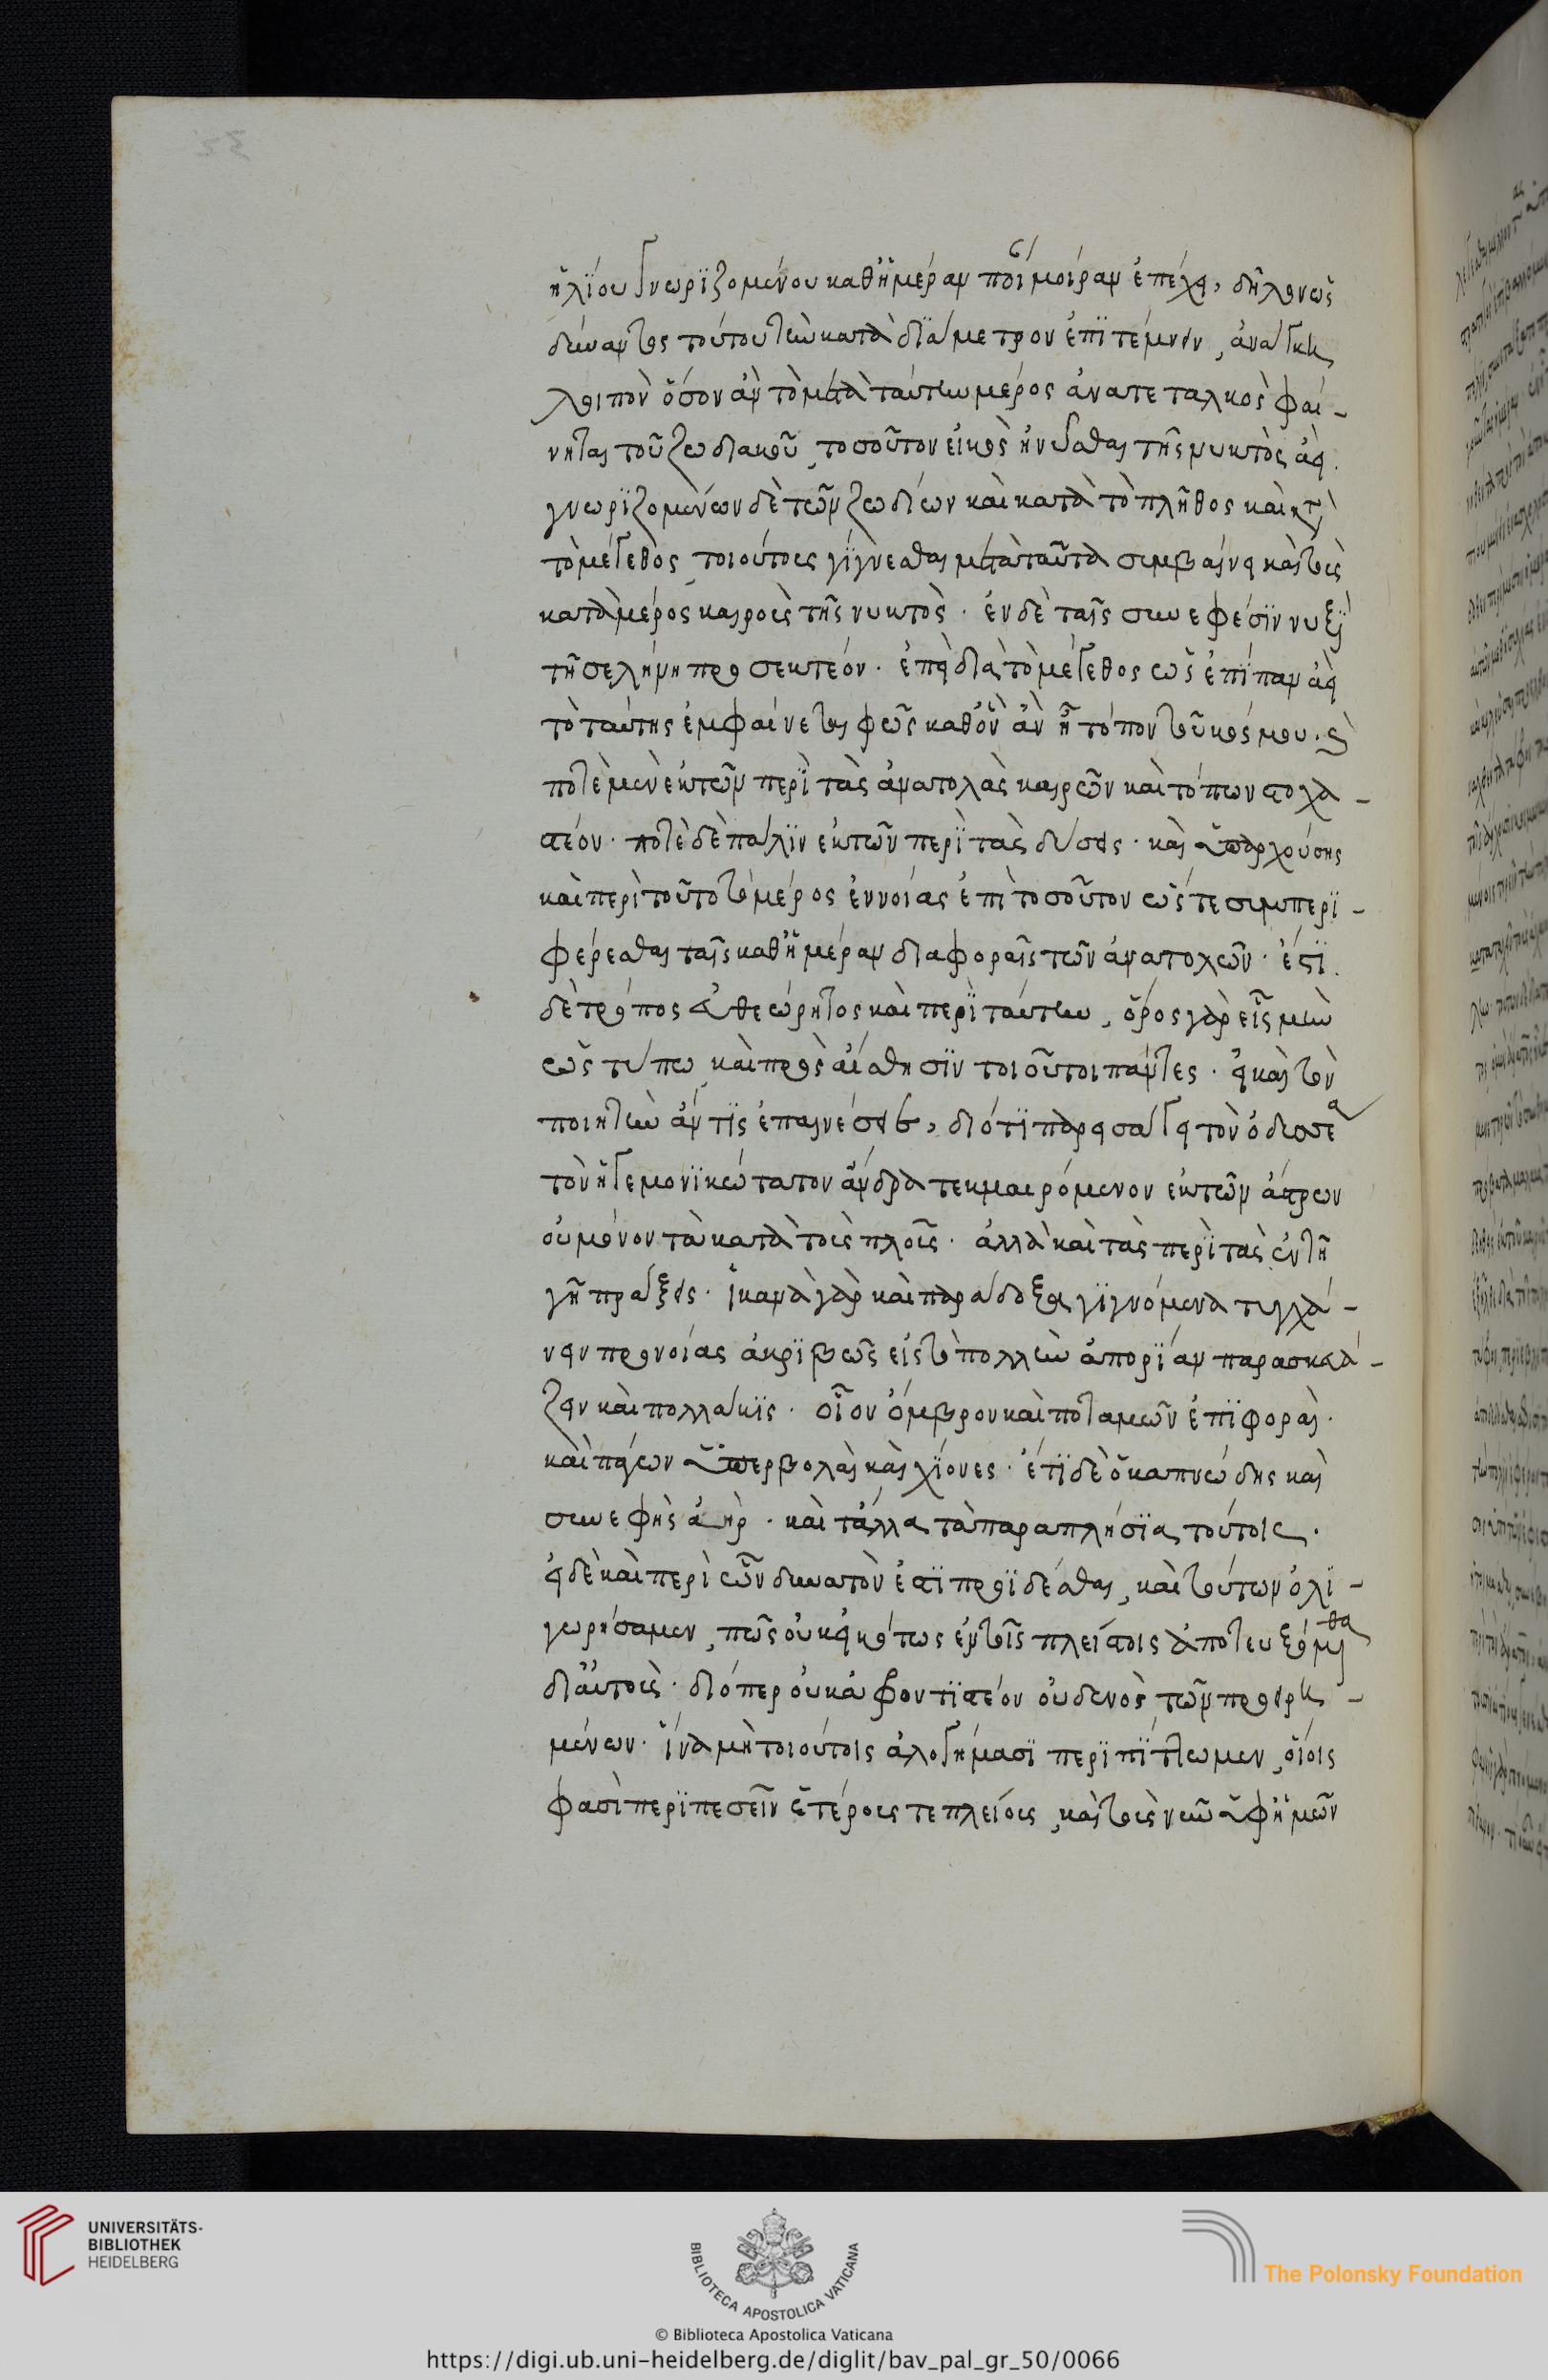 ἡλίου γνωριζομένου καθ' ἡμέραν ποί μοίραν ἐπέχει, δῆλον ὡς
δύναντος τούτου τὴν κατὰ διάμετρον ἐπιτέμνειν, ἀνάγκη
λοιπὸν ὅσον ἂν τὸ μετὰ ταύτην μέρος ἀνατεταλκὸς φαί-
νηται τοῦ ζωδιακοῦ, τοσοῦτον εἰκὸς ἠνύσθαι τῆς νυκτὸς ἀεί.
γνωριζομένων δὲ τῶν ζωδίων καὶ κατὰ τὸ πλῆθος καὶ κατὰ
τὸ μέγεθος, τοιούτους γίγνεσθαι μετὰ ταῦτα συμβαίνει καὶ τοὺς
κατὰ μέρος καιροὺς τῆς νυκτὸς. ἐν δὲ ταῖς συνεφέσιν νυξὶ
τῇ σελήνῃ προσεκτέον. ἐπεὶ διὰ τὸ μέγεθος ὡς ἐπίπαν ἀεὶ
τὸ ταύτης ἐμφαίνεται φῶς καθ' ὃν ἂν ᾖ τόπον τοῦ κόσμου. καὶ
ποτὲ μὲν ἐκ τῶν περὶ τὰς ἀνατολὰς καιρῶν καὶ τόπων στοχα-
στέον. ποτὲ δὲ πάλιν ἐκ τῶν περὶ τὰς δύσεις. καὶ ὑπαρχούσης
καὶ περὶ τοῦτο τὸ μέρος ἐννοίας ἐπὶ τοσοῦτον ὥστε συμπερι-
φέρεσθαι ταῖς καθ' ἡμέραν διαφοραῖς τῶν ἀνατολῶν. ἔστι
δὲ τρόπος εὐθεώρητος καὶ περὶ ταύτην, ὅρος γὰρ εἷς μὴν
ὡς τύπῳ, καὶ πρὸς αἴσθησιν τοιοῦτοι πάντες. ᾗ καὶ τὸν
ποιητὴν ἄν τις ἐπαινέσειε, διότι παρεισάγει τὸν ὀδυσσέα
τὸν ἡγεμονικώτατον ἄνδρα τεκμαιρόμενον ἐκ τῶν ἄστρων
οὐ μόνον τὰ κατὰ τοὺς πλοῦς. ἀλλὰ καὶ τὰς περὶ τὰς ἐν τῇ
γῇ πράξεις. ἱκανὰ γὰρ καὶ παράδοξα γιγνόμενα τυγχά-
νειν προνοίας ἀκριβῶς εἰς τὸ πολλὴν ἀπορίαν παρασκευά-
ζειν καὶ πολλάκις. οἷον ὄμβρον καὶ ποταμῶν ἐπιφοραὶ.
καὶ πάγων ὑπερβολαὶ καὶ χίονες. ἔτι δὲ ὁ καπνώδης καὶ
συνεφὴς ἀὴρ. καὶ τἄλλα τὰ παραπλήσια τούτοις.
εἰ δὲ καὶ περὶ ὧν δυνατὸν ἐστι προϊδέσθαι, καὶ τούτων ὀλι-
γωρήσαμεν, πῶς οὐκ εἰκότως ἐν τοῖς πλείστοις ἀποτευξόμεθα
δι' αὑτοὺς. διόπερ οὐκ ἀφροντιστέον οὐδενὸς τῶν προειρη-
μένων. ἵνα μὴ τοιούτοις ἀλογήμασι περιπίπτωμεν, οἵοις
φασὶ περιπεσεῖν ἑτέρους τε πλείους, καὶ τοὺς νῦν ὑφ' ἡμῶν
UNIVERSITÄTS-
BIBLIOTHEK
HEIDELBERG
BIBLIOTECA APOSTOLICA VATICANA
The Polonsky Foundation
© Biblioteca Apostolica Vaticana
https://digi.ub.uni-heidelberg.de/diglit/bav_pal_gr_50/0066